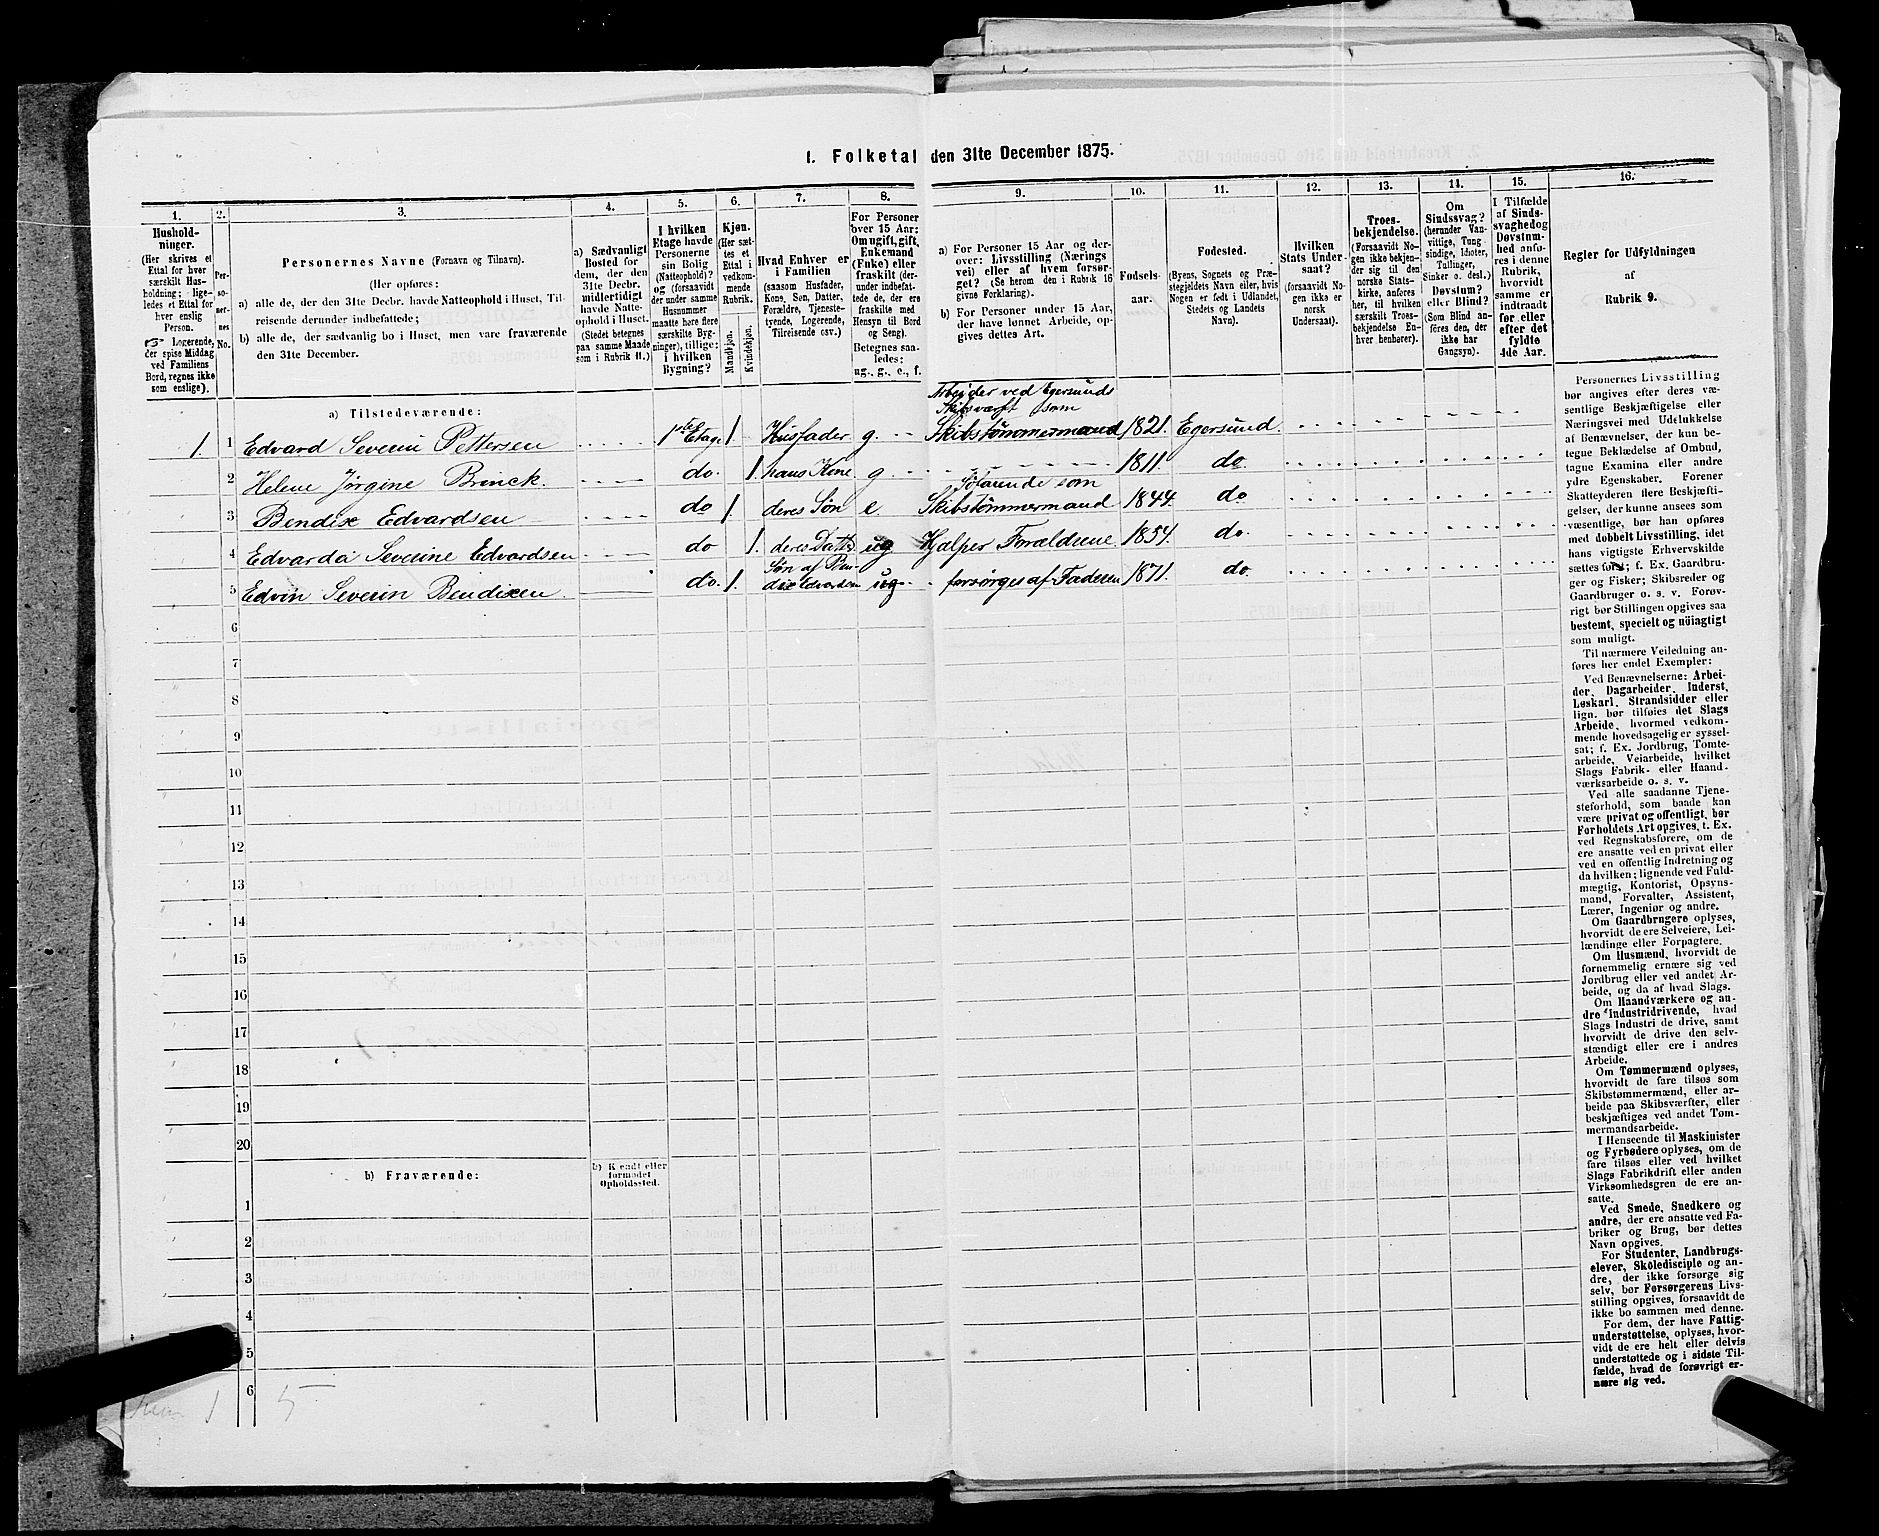 1. Folketal den 31te December 1875.
1.
2.
3.
4.
5.
6.
7.
8.
9.
10.
11.
12.
13.
14.
15.
16.
Hushold-
ninger.
(Her skrives et
Ettal for hver
særskilt Hus-
holdning; lige-
ledes et Ettal for
hver enslig
Person.
Logerende,
der spise Middag
ved Familiens
Bord, regnes ikke
som enslige).
Per-
so-
ner-
nes
No.
Personernes Navne (Fornavn og Tilnavn).
(Her opføres:
a) alle de, der den 31te Decbr. havde Natteophold i Huset, Til-
reisende derunder indbefattede;
b) alle de, der sædvanlig bo i Huset, men vare fraværende
den 31te December.
a) Sædvanligt
Bosted for
dem, der den
31te Decbr.
midlertidigt
havde Natte-
ophold i Huset.
(Stedet betegnes
paa samme Maade
som i Rubrik 11.)
I hvilken
Etage havde
Personerne
sin Bolig
(Natteophold)?
og (forsaavidt
der under samme
Husnummer
maatte høre flere
særskilte Byg-
ninger), tillige:
i hvilken
Bygning?
Kjøn.
(Her sæt-
tes et
Ettal i
vedkom-
mende
Rubrik.
Mandkjøn.
Kvindekjøn.
Hvad Enhver er
i Familien
(saasom Husfader,
Kone, Søn, Datter,
Forældre, Tjeneste-
tyende, Logerende,
Tilreisende osv.)
For Personer
over 15 Aar:
Om ugift, gift,
Enkemand
(Enke) eller
fraskilt (der-
under indbefat-
tede de, der ere
fraskilte med
Hensyn til Bord
og Seng).
Betegnes saa-
ledes:
ug., g., e., f.
a) For Personer 15 Aar og der-
over: Livsstilling (Nærings
vei) eller af hvem forsør-
get? (Se herom den i Rubrik 16
givne Forklaring).
b) For Personer under 15 Aar,
der have lønnet Arbeide, op-
gives dettes Art.
Fødsels-
aar.
Fødested.
(Byens, Sognets og Præ-
stegjeldets Navn eller, hvis
Nogen er født i Udlandet,
Stedets og Landets
Navn).
Hvilken
Stats Under-
saat?
(forsaavidt No-
gen ikke er
norsk
Undersaat).
Troes-
bekjendelse.
(Forsaavidt No-
gen ikke bekjen-
der sig til den
norske Stats-
kirke, anføres
her, til hvilken
særskilt Troes-
bekjendelse En-
hver henhører).
Om
Sindssvag?
(herunder Van-
vittige, Tung
sindige, Idioter,
Tullinger,
Sinker o. desl.)
Døvstum?
eller Blind?
(Som Blind an-
føres den, der
ikke har
Gangsyn).
I Tilfælde
af Sinds-
svaghed og
Døvstum-
hed anfø-
res i denne
Rubrik,
hvorvidt
samme er
indtraadt
før eller
efter det
fyldte
4de Aar.
Regler for Udfyldningen
af
Rubrik 9.
a) Tilstedeværende:
Arbeider ved Egersunds
Skibsværft som
1 1 Edvard Severin Pettersen 1ste Etage 1. Husfader g. Skibstømmermand 1821. Egersund.
2 Helene Jørgine Brinck. do. 1. hans Kone g 1811. do.
Søfarende som
3 Bendix Edvardsen do 1. deres Søn e. Skibstømmermand 1844. do
4 Edvarda Severine Edvardsen do 1. deres Datter ug Hjelper Forældrene 1854. do.
Søn af Ben-
5 Edvin Severin Bendixen. do. 1. dix Edvardsen ug forsørges af Faderen 1871. do.
6
7
8
9
10
11
12
13
14
15
16
17
18
19
20
b) Fraværende:
b) Kjendt eller
formodet
Opholdssted.
1
2
3
4
5
6
1 5
Personernes Livsstilling
bør angives efter deres væ-
sentlige Beskjæftigelse eller
Næringsvei med Udelukkelse
af Benævnelser, der kun be-
tegne Beklædelse af Ombud,
tagne Examina eller andre
ydre Egenskaber. Forener
Skatteyderen flere Beskjæfti-
gelser, der kunne ansees som
væsentlige, bør han opføres
med dobbelt Livsstilling, idet
hans vigtigste Erhvervskilde
sættes først; f. Ex. Gaardbru-
ger og Fisker; Skibsreder og
Gaardbruger o. s. v. Forøv-
rigt bør Stillingen opgives saa
bestemt, specielt og nøiagtigt
som muligt.
Til nærmere Veiledning an-
føres her endel Exempler:
Ved Benævnelserne: Arbei-
der, Dagarbeider, Inderst,
Løskarl, Strandsidder eller
lign. bør tilføies det Slags
Arbeide, hvormed vedkom-
mende hovedsagelig er syssel-
sat; f. Ex. Jordbrug, Tomte-
arbeide, Veiarbeide, hvilket
Slags Fabrik- eller Haand-
værksarbeide o. s. v.
Ved alle saadanne Tjene-
steforhold, som baade kan
være privat og offentligt, bør
Forholdets Art opgives, t. Ex.
ved Regnskabsførere, om de
ere ansatte ved en privat eller
ved en offentlig Indretning og
da hvilken; lignende ved Fuld-
mægtig, Kontorist, Opsyns-
mand, Forvalter, Assistent,
Lærer, Ingeniør og andre.
Om Gaardbrugere oplyses,
hvorvidt de ere Selveiere, Lei-
lændinge eller Forpagtere.
Om Husmænd, hvorvidt de
fornemmelig ernære sig ved
Jordbrug eller ved andet Ar-
beide, og da af hvad Slags.
Om Haandværkere og an-
dre Industridrivende, hvad
Slags Industri de drive, samt
hvorvidt de drive den selv-
stændigt eller ere i andres
Arbeide.
Om Tømmermænd oplyses,
hvorvidt de fare tilsøs som
Skibstømmermænd, eller ar-
beide paa Skibsværfter, eller
beskjæftiges ved andet Tøm-
mermandsarbeide.
I Henseende til Maskinister
og Fyrbødere oplyses, om de
fare tilsøs eller ved hvilket
Slags Fabrikdrift eller anden
Virksomhedsgren de ere an-
satte.
Ved Smede, Snedkere og
andre, der ere ansatte ved Fa-
briker og Brug, bør dettes
Navn opgives.
For Studenter, Landbrugs-
elever, Skoledisciple og an-
dre, der ikke forsørge sig
selv, bør Forsørgerens Livs-
stilling opgives, forsaavidt de
ikke bo sammen med denne.
For dem, der have Fattig-
understøttelse, oplyses, hvor-
vidt de ere helt eller delvis
understøttede og i sidste Til-
fælde, hvad de forøvrigt er-
nære sig ved.